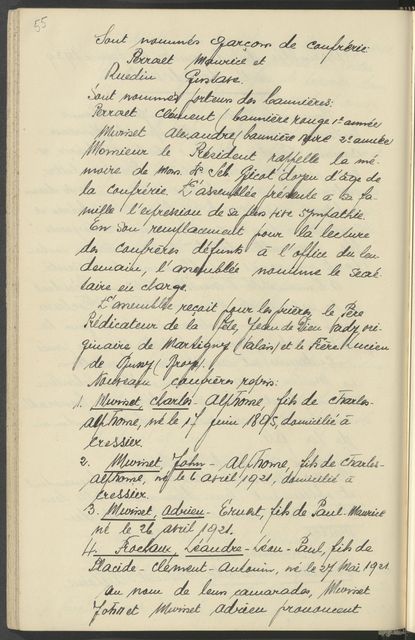 55
Sont nommés garçons de confrérie:
Perroset Maurice et
Ruedin Gustave.
Sont nommés porteurs des bannières:
Perroset Clément (bannière rouge 1e année
Muriset Alexandre (bannière 2e année
Monsieur le Président rappelle la mé-
moire de Mons. Séb. Gicot doyen d'âge de
la confrérie. L'assemblée présente à sa fa-
mille l'expression de sa plus vive sympathie.
En son remplacement pour la lecture
des confrères défunts à l'office du len
demain, l'assemblée nomme le secré-
taire en charge.
L'assemblée reçoit pour les prières le Père
Prédicateur de la fête, Jean de Dieu ori-
ginaire de Martigny (Valais) et le Frère Lucien
de
Nouveaux confrères reçus:
1. Muriset, Charles-Alphonse, fils de Charles-
Alphonse, né le 17 juin 1895, domicilié à
Cressier.
2. Muriset, John-Alphonse, fils de Charles-
Alphonse, né le 6 avril 1921, domicilié à
Cressier.
3. Muriset, Adrien-Ernest, fils de Paul-Maurice
né le 26 avril 1921.
4. Frochaux, Léandre-Léon-Paul, fils de
Placide-Clément-Antonin, né le 27 Mai 1921
au nom de leurs camarades, Muriset
John et Muriset Adrien prononcent